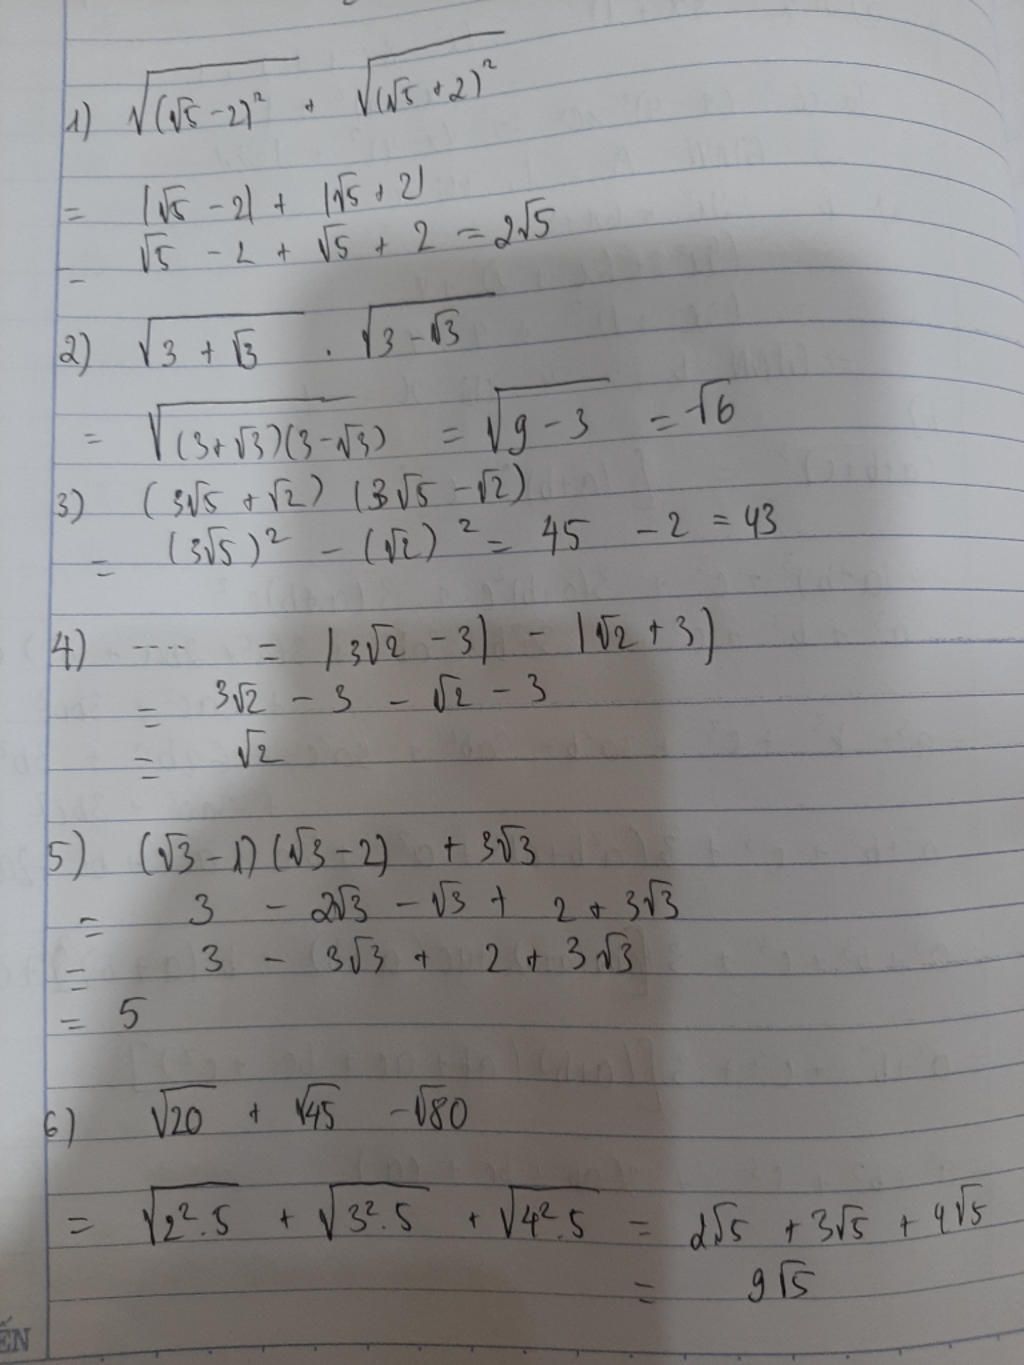 1) √(√5 - 2)² + √(√5 + 2)²
= |√5 - 2| + |√5 + 2|
= √5 - 2 + √5 + 2 = 2√5
2) √3 + √3 . √3 - √3
= √(3+√3)(3-√3) = √9 - 3 = √6
3) (3√5 + √2) (3√5 - √2)
= (3√5)² - (√2)² = 45 - 2 = 43
4) .... = |3√2 - 3| - |√2 + 3|
= 3√2 - 3 - √2 - 3
= √2
5) (√3 - 1) (√3 - 2) + 3√3
= 3 - 2√3 - √3 + 2 + 3√3
= 3 - 3√3 + 2 + 3√3
= 5
6) √20 + √45 - √80
= √2².5 + √3².5 + √4².5 = 2√5 + 3√5 + 4√5
= 9√5
ẾN